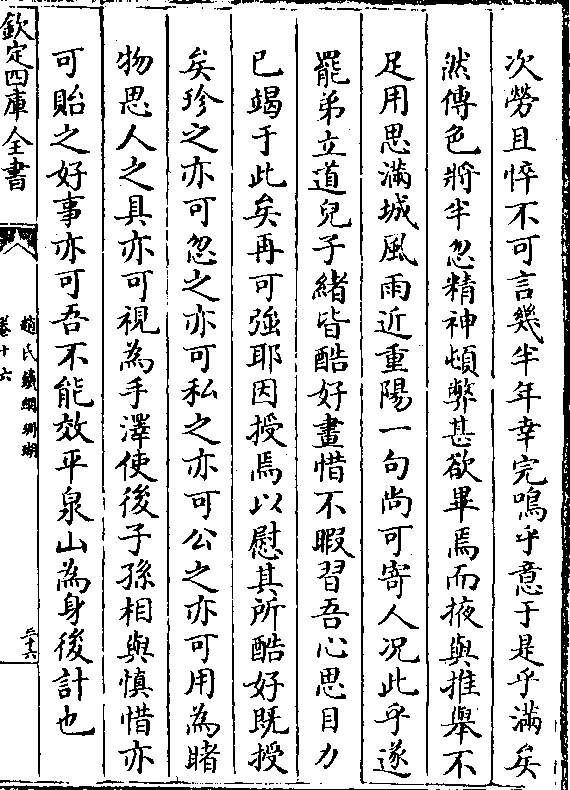 次勞且悴不可言幾半年幸完嗚乎意于是乎滿矣
然傅色將半忽精神頓弊甚欲畢焉而掖與推舉不
足用思滿城風雨近重陽一句尚可寄人况此乎遂
罷弟立道兒子緒皆酷好畫惜不暇習吾心思目力
已竭于此矣再可強耶因授焉以慰其所酷好既授
矣珍之亦可忽之亦可私之亦可公之亦可用為睹
物思人之具亦可視為手澤使後子孫相與慎惜亦
可貽之好事亦可吾不能效平泉山為身後計也
欽定四庫全書
趙氏鐵網珊瑚
卷十六
三十六